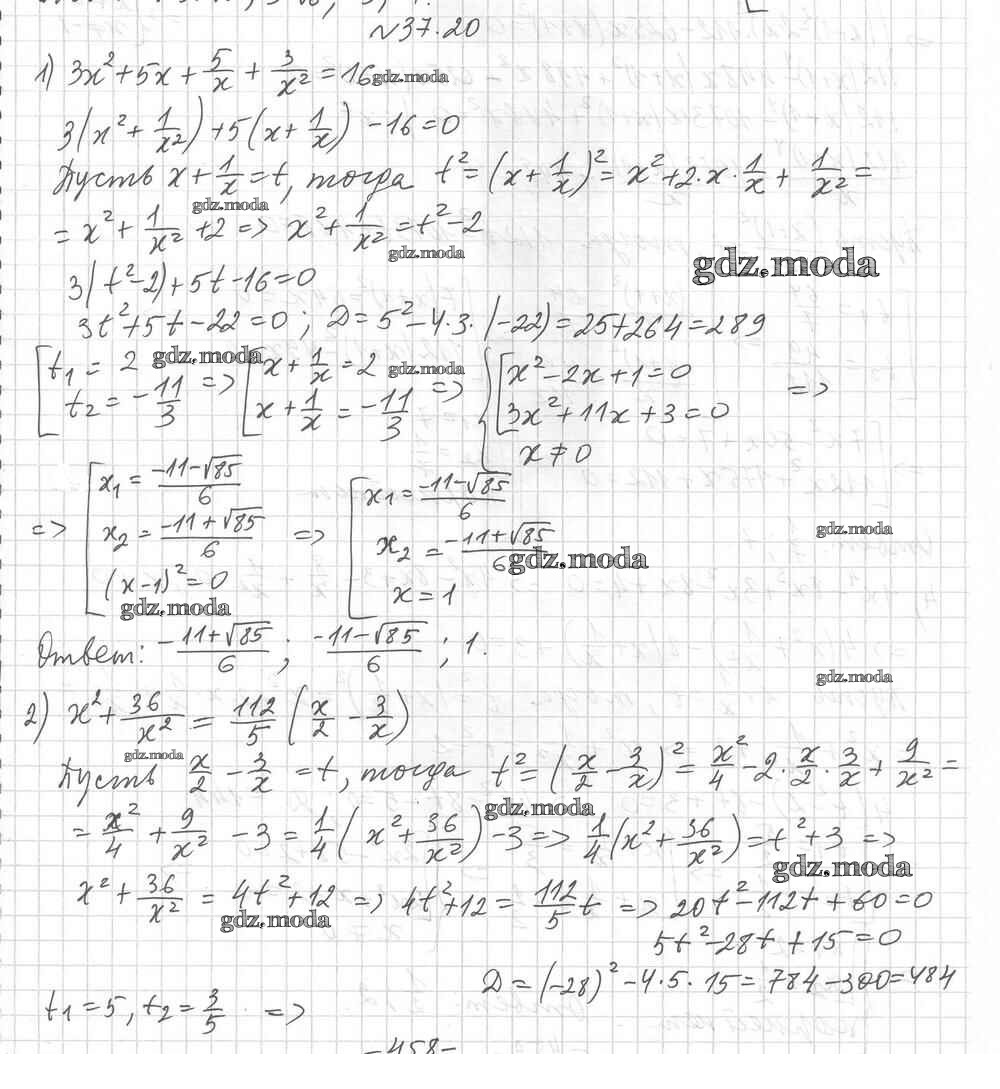 №37.20
1) 3x² + 5x + 5/x + 3/x² = 16 gdz.moda
3(x² + 1/x²) + 5(x + 1/x) - 16 = 0
Пусть x + 1/x = t, тогда t² = (x + 1/x)² = x² + 2·x·1/x + 1/x² =
gdz.moda
= x² + 1/x² + 2 => x² + 1/x² = t² - 2
gdz.moda
gdz.moda
3(t² - 2) + 5t - 16 = 0
3t² + 5t - 22 = 0; D = 5² - 4·3·(-22) = 25 + 264 = 289
[t₁ = 2 gdz.moda [x + 1/x = 2 gdz.moda {[x² - 2x + 1 = 0
t₂ = -11/3 => x + 1/x = -11/3 => 3x² + 11x + 3 = 0 =>
x ≠ 0
=> [x₁ = (-11-√85)/6 => [x₁ = (-11-√85)/6
x₂ = (-11+√85)/6 x₂ = (-11+√85)/6
gdz.moda
gdz.moda
(x-1)² = 0 x = 1
gdz.moda
Ответ: (-11+√85)/6; (-11-√85)/6; 1.
gdz.moda
2) x² + 36/x² = 112/5 (x/2 - 3/x)
gdz.moda
Пусть x/2 - 3/x = t, тогда t² = (x/2 - 3/x)² = x²/4 - 2·x/2·3/x + 9/x² =
gdz.moda
= x²/4 + 9/x² - 3 = 1/4(x² + 36/x²) - 3 => 1/4(x² + 36/x²) = t² + 3 =>
gdz.moda
x² + 36/x² = 4t² + 12 => 4t² + 12 = 112/5 t => 20t² - 112t + 60 = 0
gdz.moda
5t² - 28t + 15 = 0
D = (-28)² - 4·5·15 = 784 - 300 = 484
t₁ = 5, t₂ = 3/5 =>
-458-